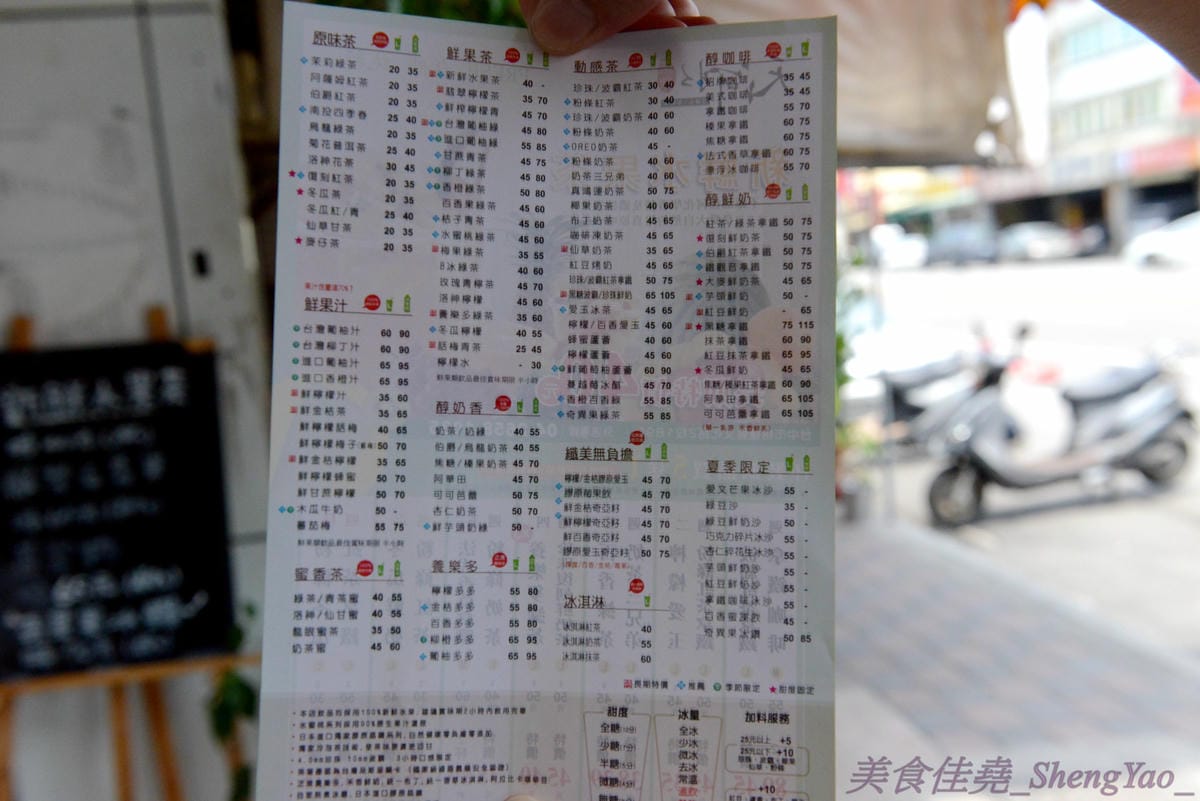 原味茶
茉莉綠茶 20 35
阿薩姆紅茶 20 35
伯爵紅茶 20 35
南投四季春 25 40
烏龍綠茶 20 35
菊花普洱茶 25 40
洛神花茶 30 45
復刻紅茶 20 35
冬瓜茶 20 35
冬瓜紅/青 25 40
仙草甘茶 20 35
麥仔茶 20 35
鮮果汁
台灣葡柚汁 60 90
台灣柳丁汁 60 90
進口葡柚汁 65 95
進口香橙汁 65 95
鮮檸檬汁 35 60
鮮金桔茶 35 65
鮮檸檬話梅 40 65
鮮檸檬梅子 50 70
鮮金桔檸檬 35 65
鮮檸檬蜂蜜 50 70
鮮甘蔗檸檬 50 70
木瓜牛奶 50 -
蕃茄梅 55 75
蜜香茶
綠茶/青茶蜜 40 55
洛神/仙甘蜜 40 55
龍眼蜜茶 35 50
奶茶蜜 45 60
鮮果茶
新鮮水果茶 40 -
翡翠檸檬茶 35 70
鮮榨檸檬青 45 70
台灣葡柚綠 45 80
進口葡柚綠 55 85
甘蔗青茶 45 75
柳丁綠茶 45 80
香橙綠茶 50 80
百香果綠茶 45 60
桔子青茶 45 60
水蜜桃綠茶 45 60
梅果綠茶 35 55
8冰綠茶 40 60
玫瑰青檸茶 45 70
洛神檸檬 45 60
養樂多綠茶 35 60
冬瓜檸檬 40 55
話梅青茶 25 45
檸檬水 - 30
鮮果類飲品最佳賞味期限 半小時
醇奶香
奶茶/奶綠 40 55
伯爵/烏龍奶茶 40 55
焦糖/榛果奶茶 45 70
阿華田 45 70
可可芭蕾 50 75
杏仁奶茶 50 70
鮮芋頭奶綠 50 -
養樂多
檸檬多多 55 80
金桔多多 55 80
百香多多 55 80
柳橙多多 65 95
葡柚多多 65 95
動感茶
珍珠/波霸紅茶 30 40
粉條紅茶 30 40
珍珠/波霸奶茶 40 60
粉條奶茶 40 60
OREO奶茶 45 -
粉條奶茶 40 60
奶茶三兄弟 40 60
真鴻運奶茶 50 75
椰果奶茶 40 60
布丁奶茶 45 65
咖啡凍奶茶 45 65
仙草奶茶 35 65
紅豆烤奶 45 65
珍珠/波霸紅茶拿鐵 50 75
黑糖波霸/珍珠鮮奶 65 105
愛玉冰茶 45 65
檸檬/百香愛玉 45 60
蜂蜜蘆薈 40 60
檸檬蘆薈 45 60
鮮葡萄柚蘆薈 60 90
蔓越莓冰醋 45 70
香橙百香綠 55 85
奇異果綠茶 55 85
纖美無負擔
檸檬/金桔膠原愛玉 45 70
膠原莓果飲 45 70
鮮金桔奇亞籽 45 70
鮮檸檬奇亞籽 45 70
鮮百香奇亞籽 45 70
膠原愛玉奇亞籽 50 75
冰淇淋
冰淇淋紅茶 40
冰淇淋奶茶 55
冰淇淋抹茶 60
醇咖啡
招牌咖啡 35 45
美式咖啡 35 45
拿鐵咖啡 55 70
榛果拿鐵 60 75
焦糖拿鐵 60 75
法式香草拿鐵 60 75
漂浮冰咖啡 55 70
醇鮮奶
紅茶/綠茶拿鐵 50 75
復刻鮮奶茶 50 75
伯爵紅茶拿鐵 50 75
鐵觀音拿鐵 50 75
大麥鮮奶茶 45 65
芋頭鮮奶 50 -
紅豆鮮奶 - 65
黑糖拿鐵 75 115
抹茶拿鐵 60 90
紅豆抹茶拿鐵 65 95
冬瓜鮮奶 45 65
焦糖/榛果紅茶拿鐵 60 90
阿華田拿鐵 65 105
可可芭蕾拿鐵 65 105
夏季限定
愛文芒果冰沙 55 -
綠豆沙 35 -
綠豆鮮奶沙 50 -
巧克力碎片冰沙 55 -
杏仁碎花生冰沙 55 -
芋頭鮮奶沙 55 -
紅豆鮮奶沙 55 -
拿鐵咖啡冰沙 55 -
百香蜜凍飲 45 -
奇異果冰鑽 50 85
長期特價 推薦 季節限定 甜度固定
甜度
全糖
少糖
半糖
微糖
冰量
全冰
少冰
微冰
去冰
常溫
溫飲
加料服務
25元以上 +5
25元以下 +10
+10
美食佳堯_ShengYao_